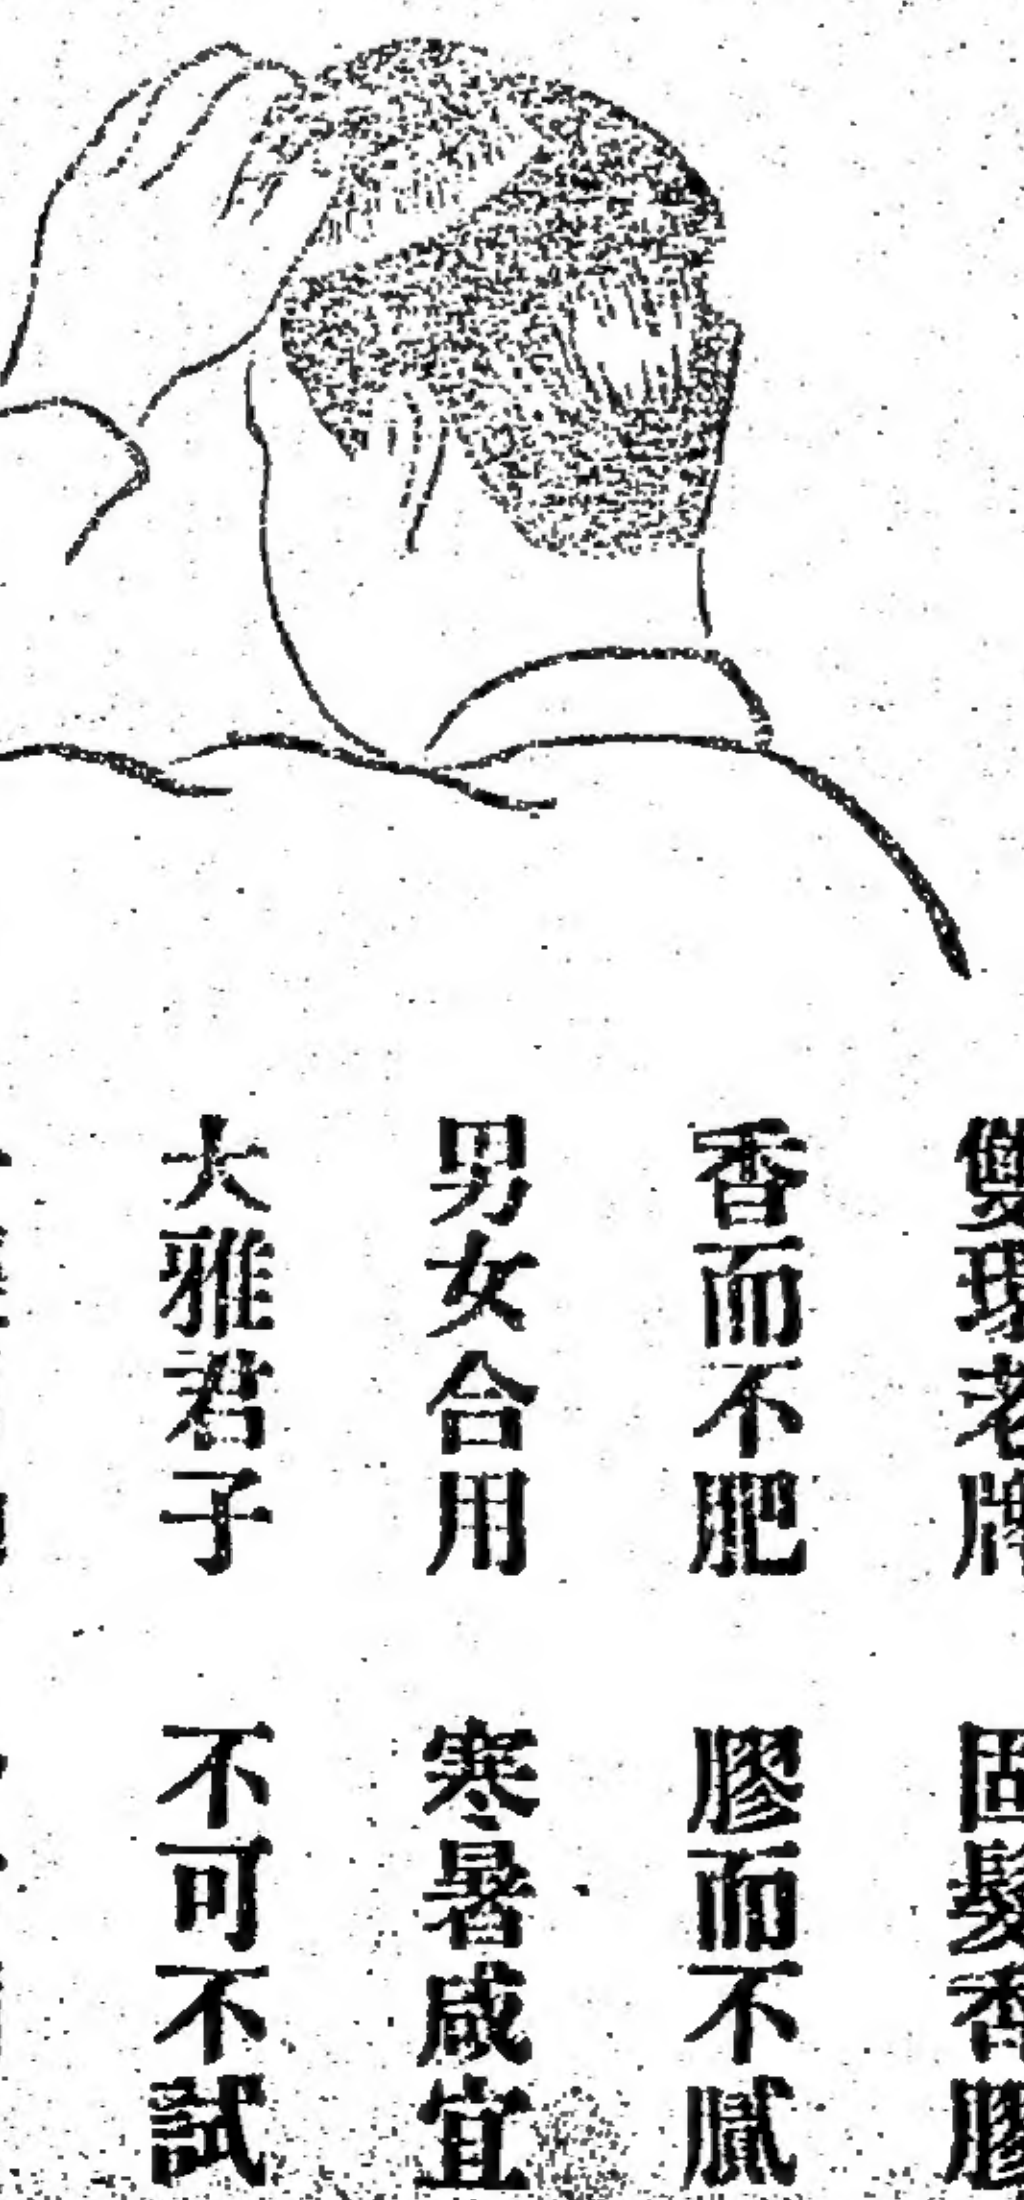 雙球老牌 固髮香膠
香而不肥 膠而不膩
男女合用 寒暑咸宜
大雅君子 不可不試